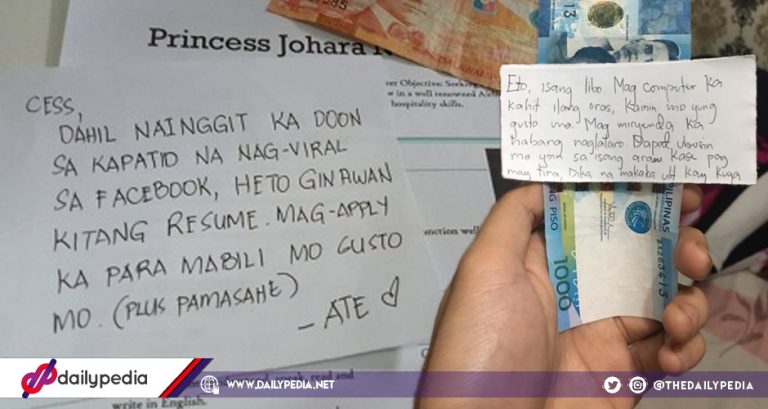 Princess Johara
Objective:
in a well renowned
hospitality skills.
CESS,
DAHIL NAINGGIT KA DOON
SA KAPATID NA NAG-VIRAL
SA FACEBOOK, HETO GINAWAN
KITANG RESUME. MAG-APPLY
KA PARA MABILI MO GUSTO
MO. (PLUS PAMASAHE)
- ATE ♡
read and
write in English.
Eto, isang libo. Mag computer ka
kahit ilang oras, kainin mo yung
gusto mo. Mag miryenda ka
habang naglalaro. Dapat ubusin
mo yon sa isang araw kase pag
may tira, Dika na makaka ulit kay kuya
PILIPINAS
PISO
1000
dailypedia
WWW.DAILYPEDIA.NET
@THEDAILYPEDIA